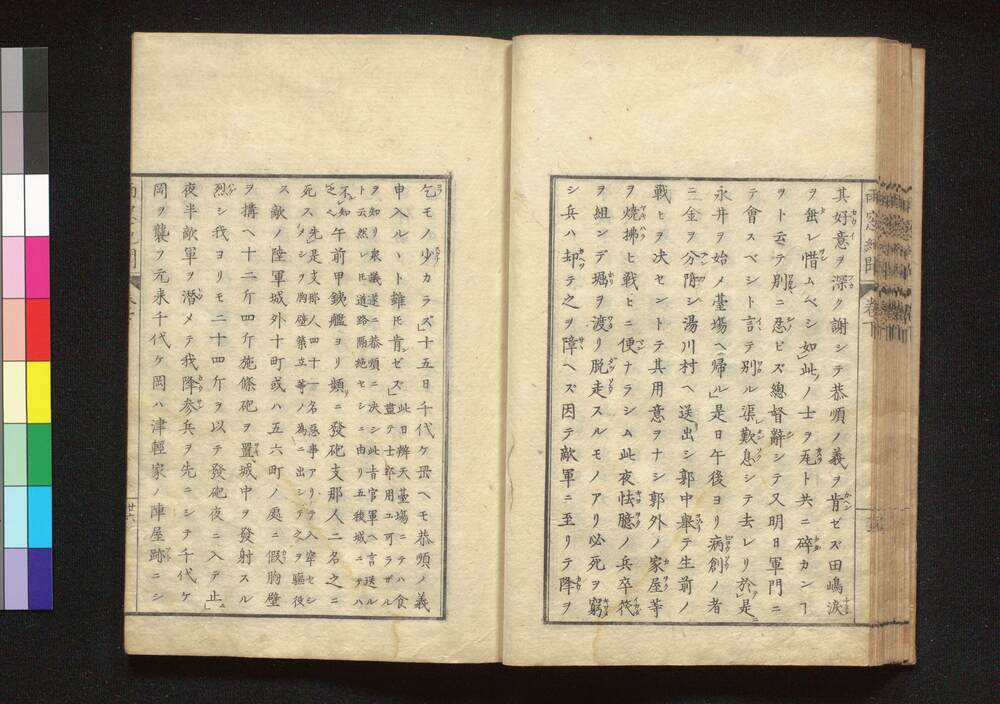 其好意ヲ深ク謝シテ恭順ノ義ヲ肯ゼズ田嶋涙
ヲ垂レ惜ムベシ如此ノ士ヲ瓦ト共ニ碎カンヿ
ヲト云テ別ニ忍ビズ總督辭シテ又明日軍門ニ
テ會スベシト言テ別ル渠歎息シテ去レリ於是
永井ヲ始メ臺塲ヘ歸ル」是日午後ヨリ病創ノ者
ニ金ヲ分隋シ湯川村ヘ送出シ郭中舉テ生前ノ
戰ヒヲ决セントテ其用意ヲナシ郭外ノ家屋等
ヲ燒拂ヒ戰ヒニ便ナラシム此夜怯臆ノ兵卒筏
ヲ組ンデ堀ヲ渡リ脱走スルモノアリ必死ヲ窮
シ兵ハ却テ之ヲ障ヘズ因テ敵軍ニ至リテ降ヲ
乞モノ少カラズ」十五日千代ケ岡ヘモ恭順ノ義
申入ルヽト雖𪜈肯ゼズ」此日辨天臺塲ニテハ食
盡テ士卒用ユ可ラザル
ヲ知リ衆議遂ニ恭順ニ决シ此旨官軍ヘ言送ル
ト云然レ𪜈道路隔絶セシニ由リ五稜城ニテハ
不知之
午前甲鉄艦ヨリ頻ニ發砲支那人二名之ニ
死ス
先是支那人四十一名惡事アリテ入牢セシ
ヲ胸壁築立等ノ為ニ出シテ之ヲ驅役
ス
敵ノ陸軍城外十町或ハ五六町ノ處ニ假胸壁
ヲ搆ヘ十二斤四斤施條砲ヲ置城中ヲ發射スル
烈シ我ヨリモ二十四斤ヲ以テ發砲夜ニ入テ止」
夜半敵軍ヲ潜メテ我降參兵ヲ先ニシテ千代ケ
岡ヲ襲フ元来千代ケ岡ハ津輕家ノ陣屋跡ニシ